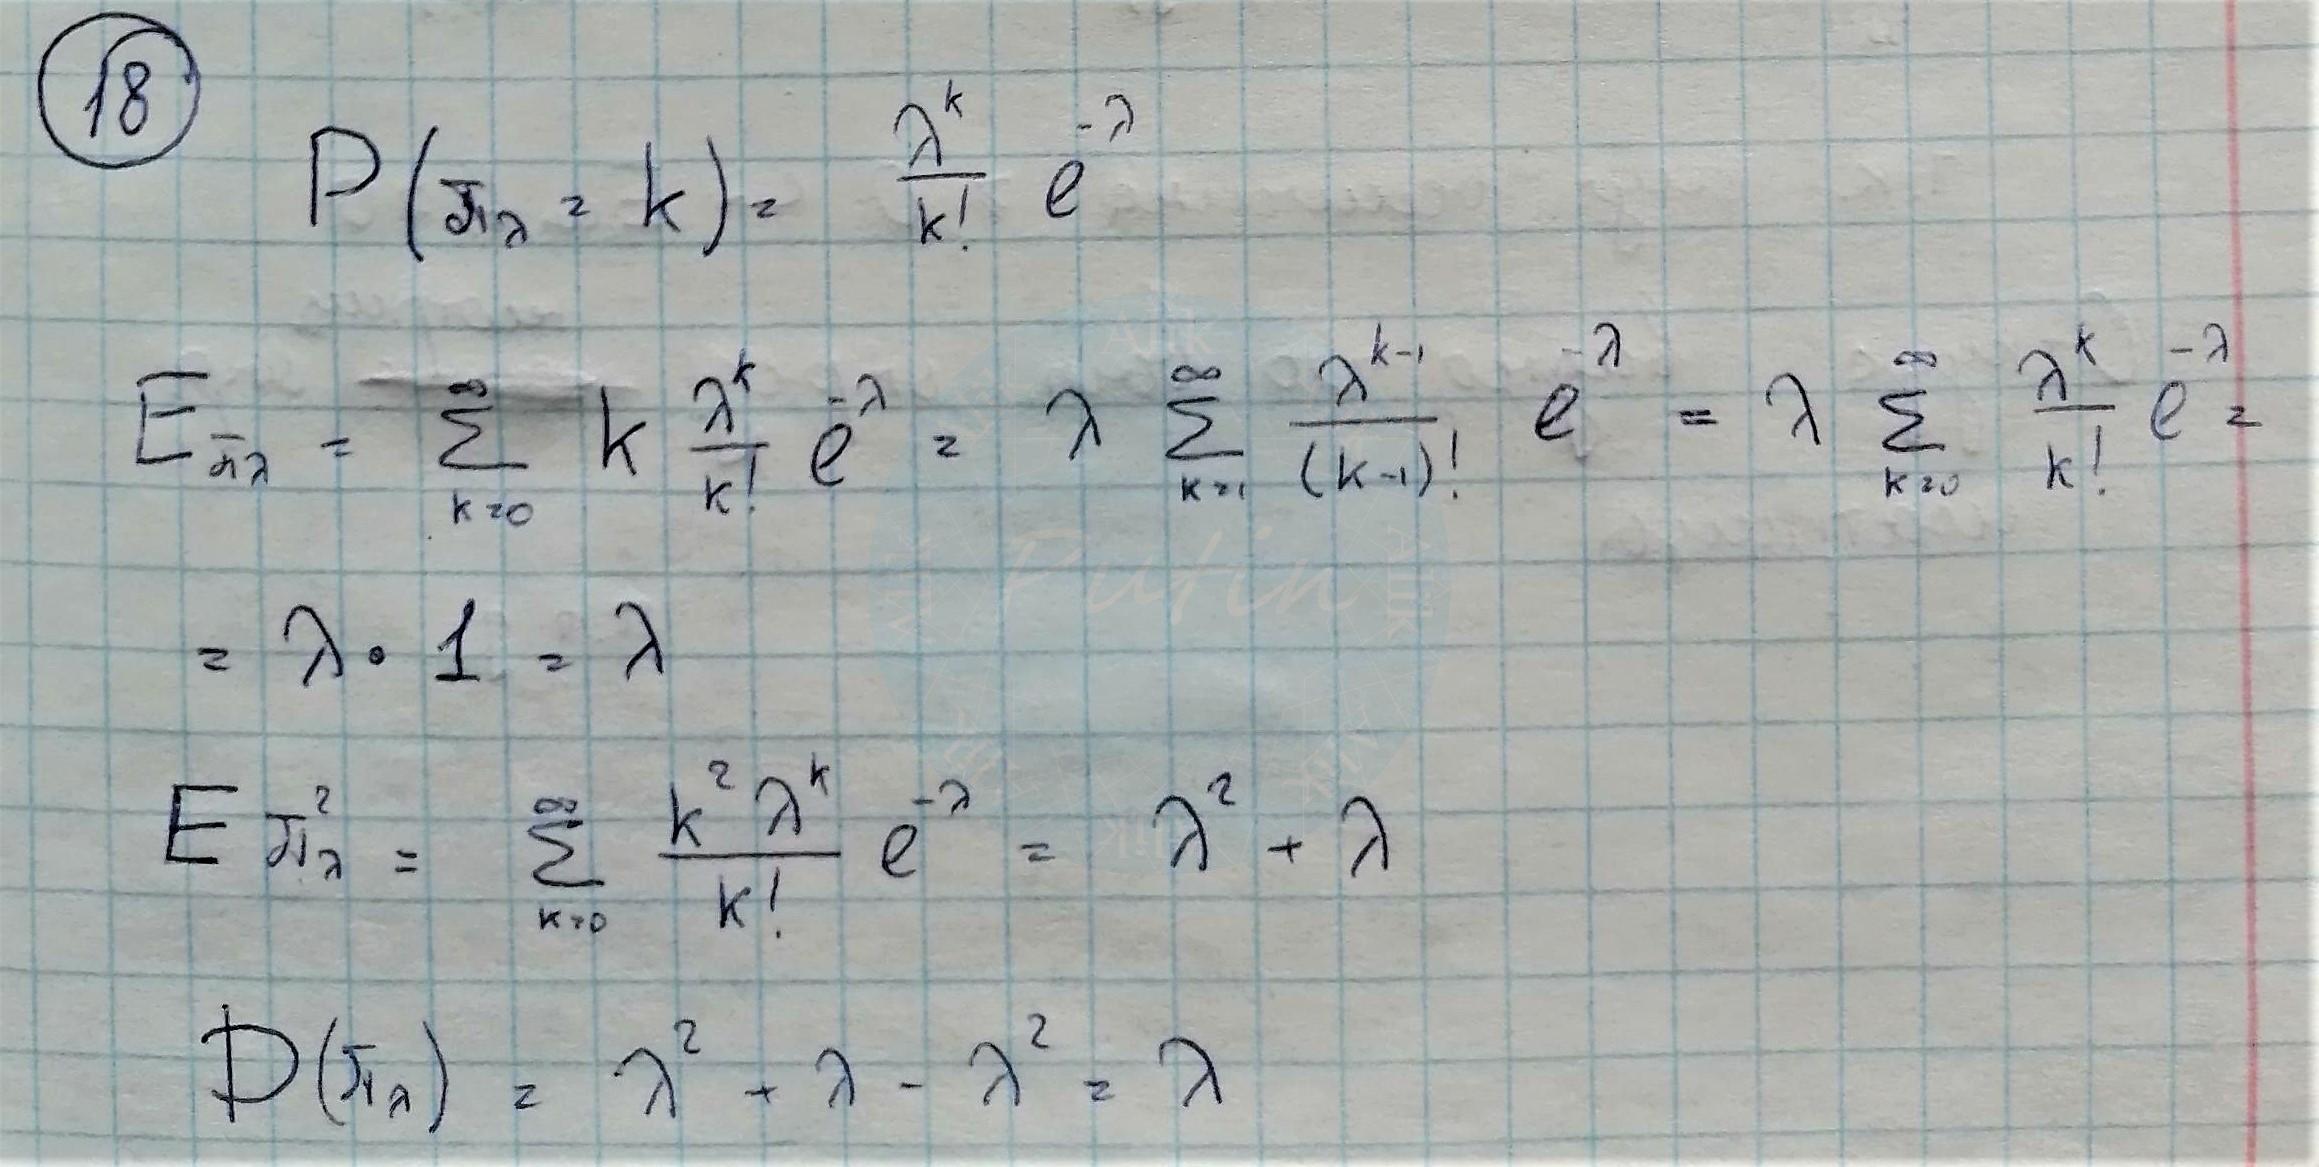 18
P(π_λ = k) = λ^k/k! e^{-λ}
Eπ_λ = ∑_{k=0}^{∞} k λ^k/k! e^{-λ} = λ ∑_{k=1}^{∞} λ^{k-1}/(k-1)! e^{-λ} = λ ∑_{k=0}^{∞} λ^k/k! e^{-λ} =
= λ · 1 = λ
Eπ_λ^2 = ∑_{k=0}^{∞} k^2 λ^k/k! e^{-λ} = λ^2 + λ
D(π_λ) = λ^2 + λ - λ^2 = λ
Putin